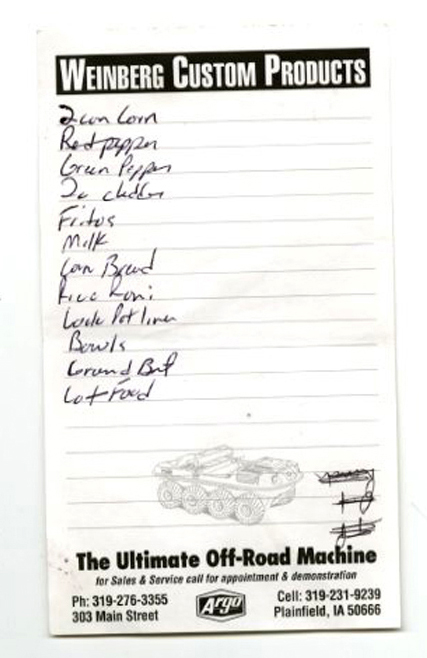 WEINBERG CUSTOM PRODUCTS
2 can Corn
Red pepper
Green Pepper
2c chedder
Fritos
Milk
Corn Bread
Rice Roni
Pot liner
Bowls
Ground Beef
Cat Food
The Ultimate Off-Road Machine
for Sales & Service call for appointment & demonstration
Ph: 319-276-3355 Argo Cell: 319-231-9239
303 Main Street Plainfield, IA 50666